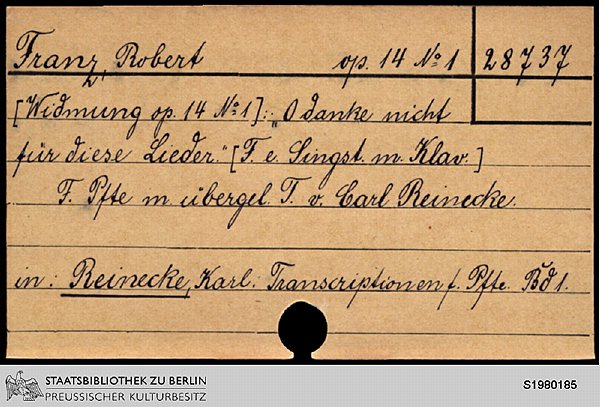 Franz, Robert op. 14 No 1 28737
[Widmung op. 14 No 1]: „O danke nicht
für diese Lieder." [F. e. Singst. m. Klav.]
F. Pfte m. übergel. T. v. Carl Reinecke.
in: Reinecke, Karl: Transcriptionen f. Pfte. Bd 1.
STAATSBIBLIOTHEK ZU BERLIN
PREUSSISCHER KULTURBESITZ
S1980185